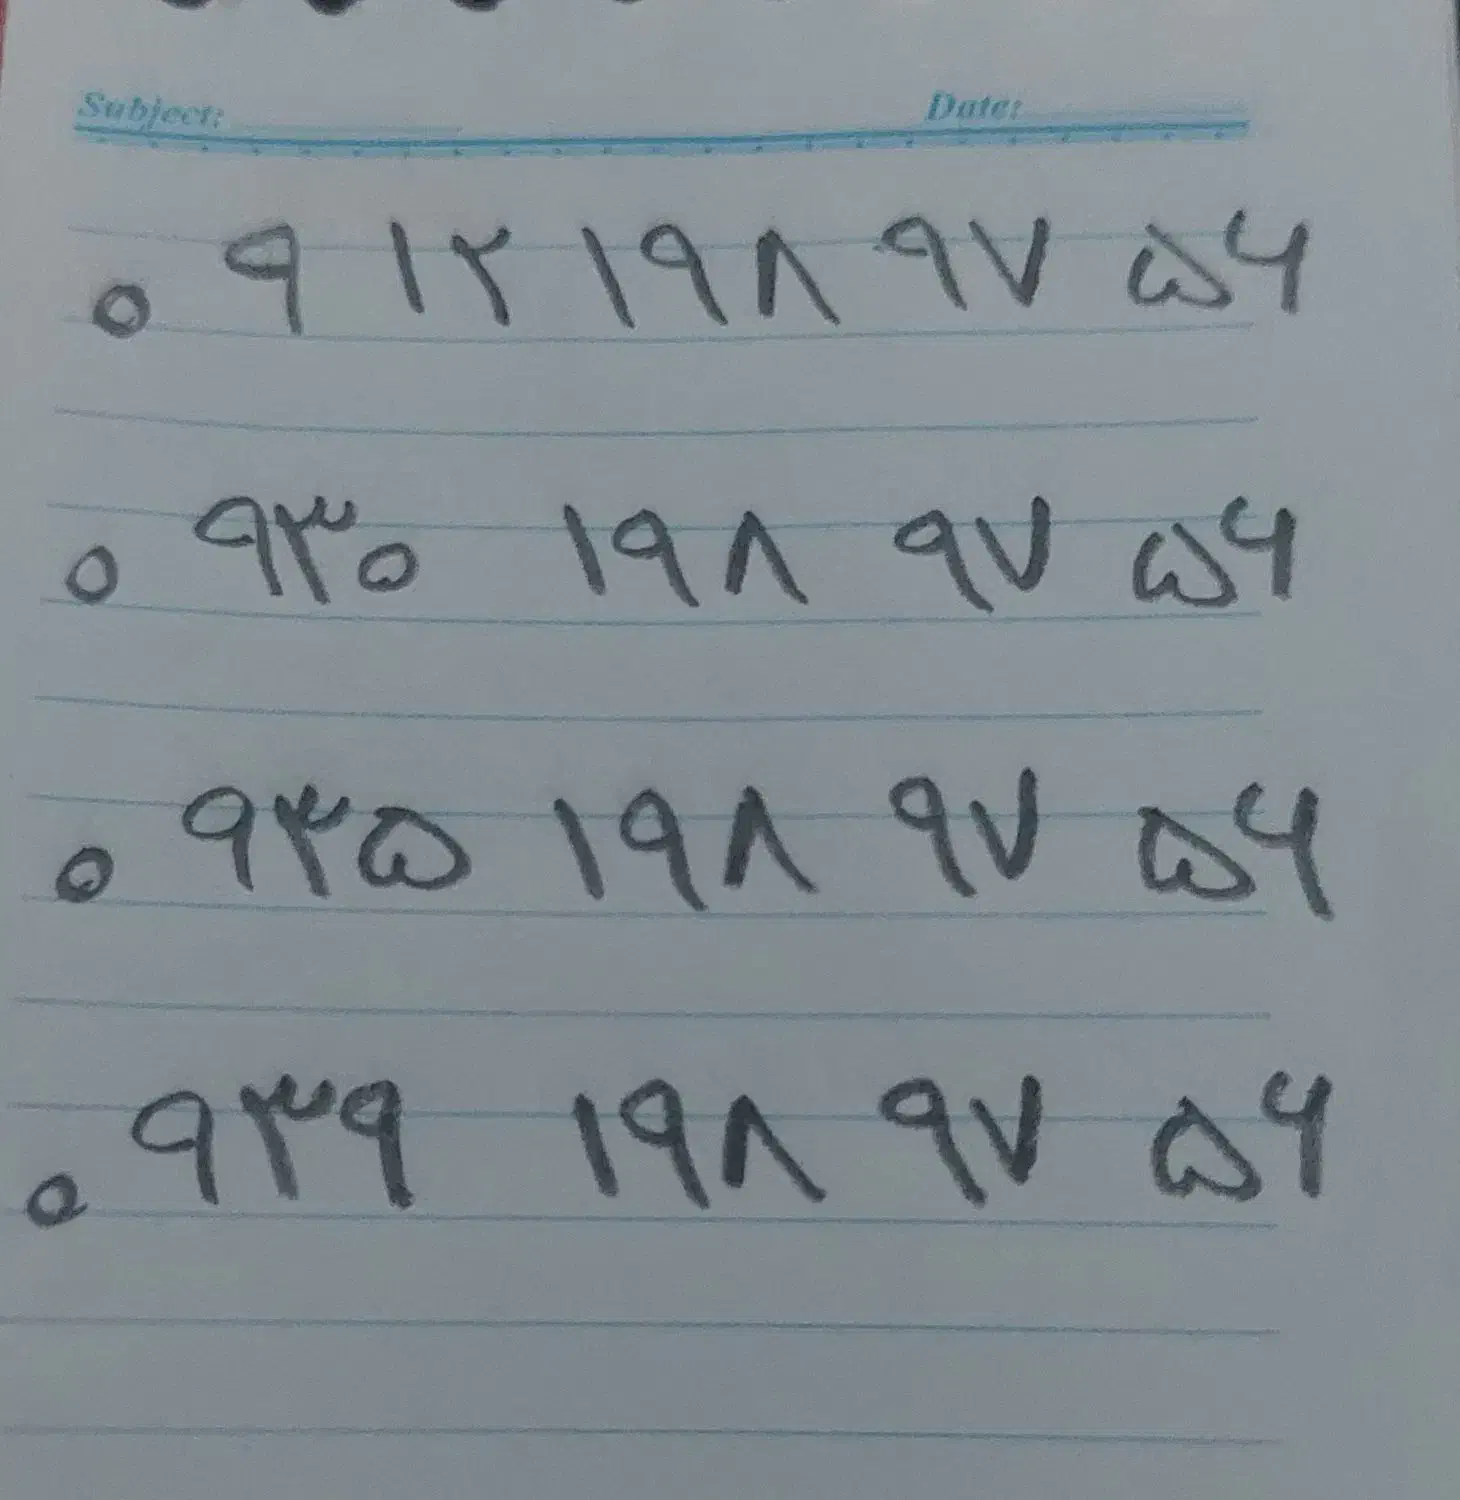 Subject: Date:
۰۹۱۲ ۱۹۸ ۹۷ ۵۶
۰۹۳۰ ۱۹۸ ۹۷ ۵۶
۰۹۳۵ ۱۹۸ ۹۷ ۵۶
۰۹۳۹ ۱۹۸ ۹۷ ۵۶